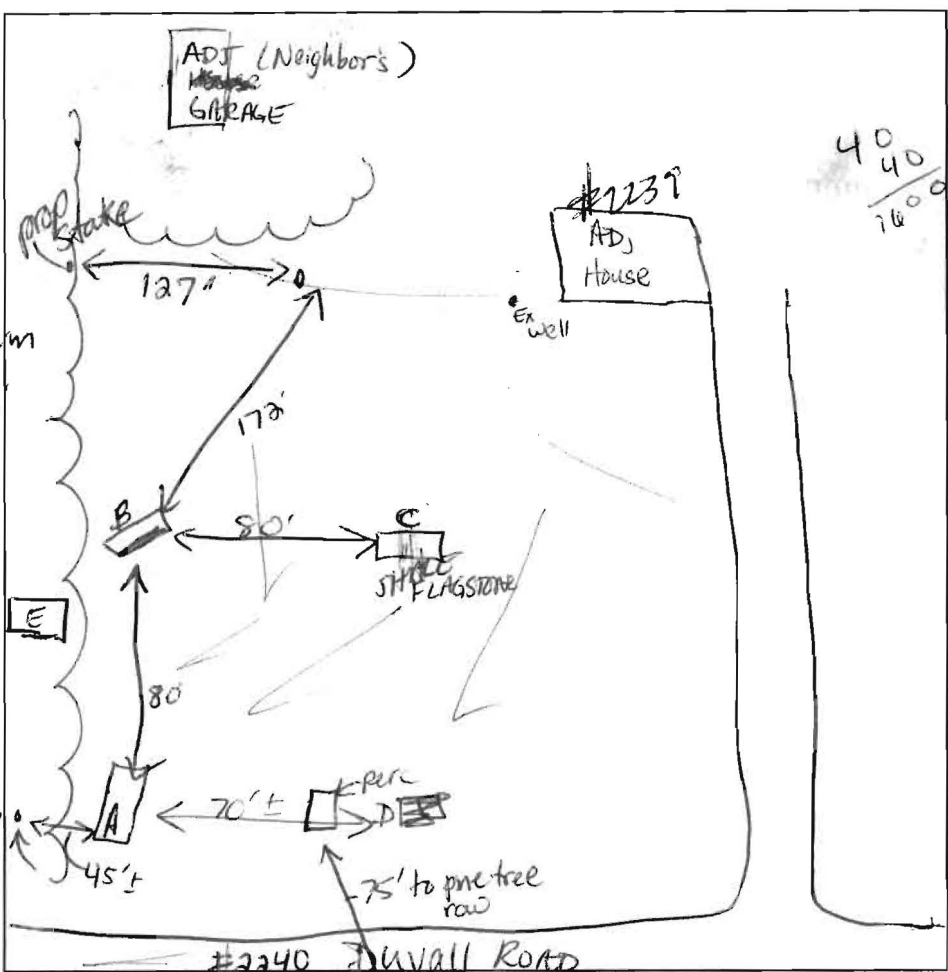 ADJ (Neighbor's)
GARAGE
40
40
1600
prop
stake
#2239
ADJ
House
127'
Ex
well
m
172'
B
80'
C
SHALE
FLAGSTONE
E
80'
perc
A
70'±
D
45'±
75' to pine tree
row
#2240 Duvall ROAD